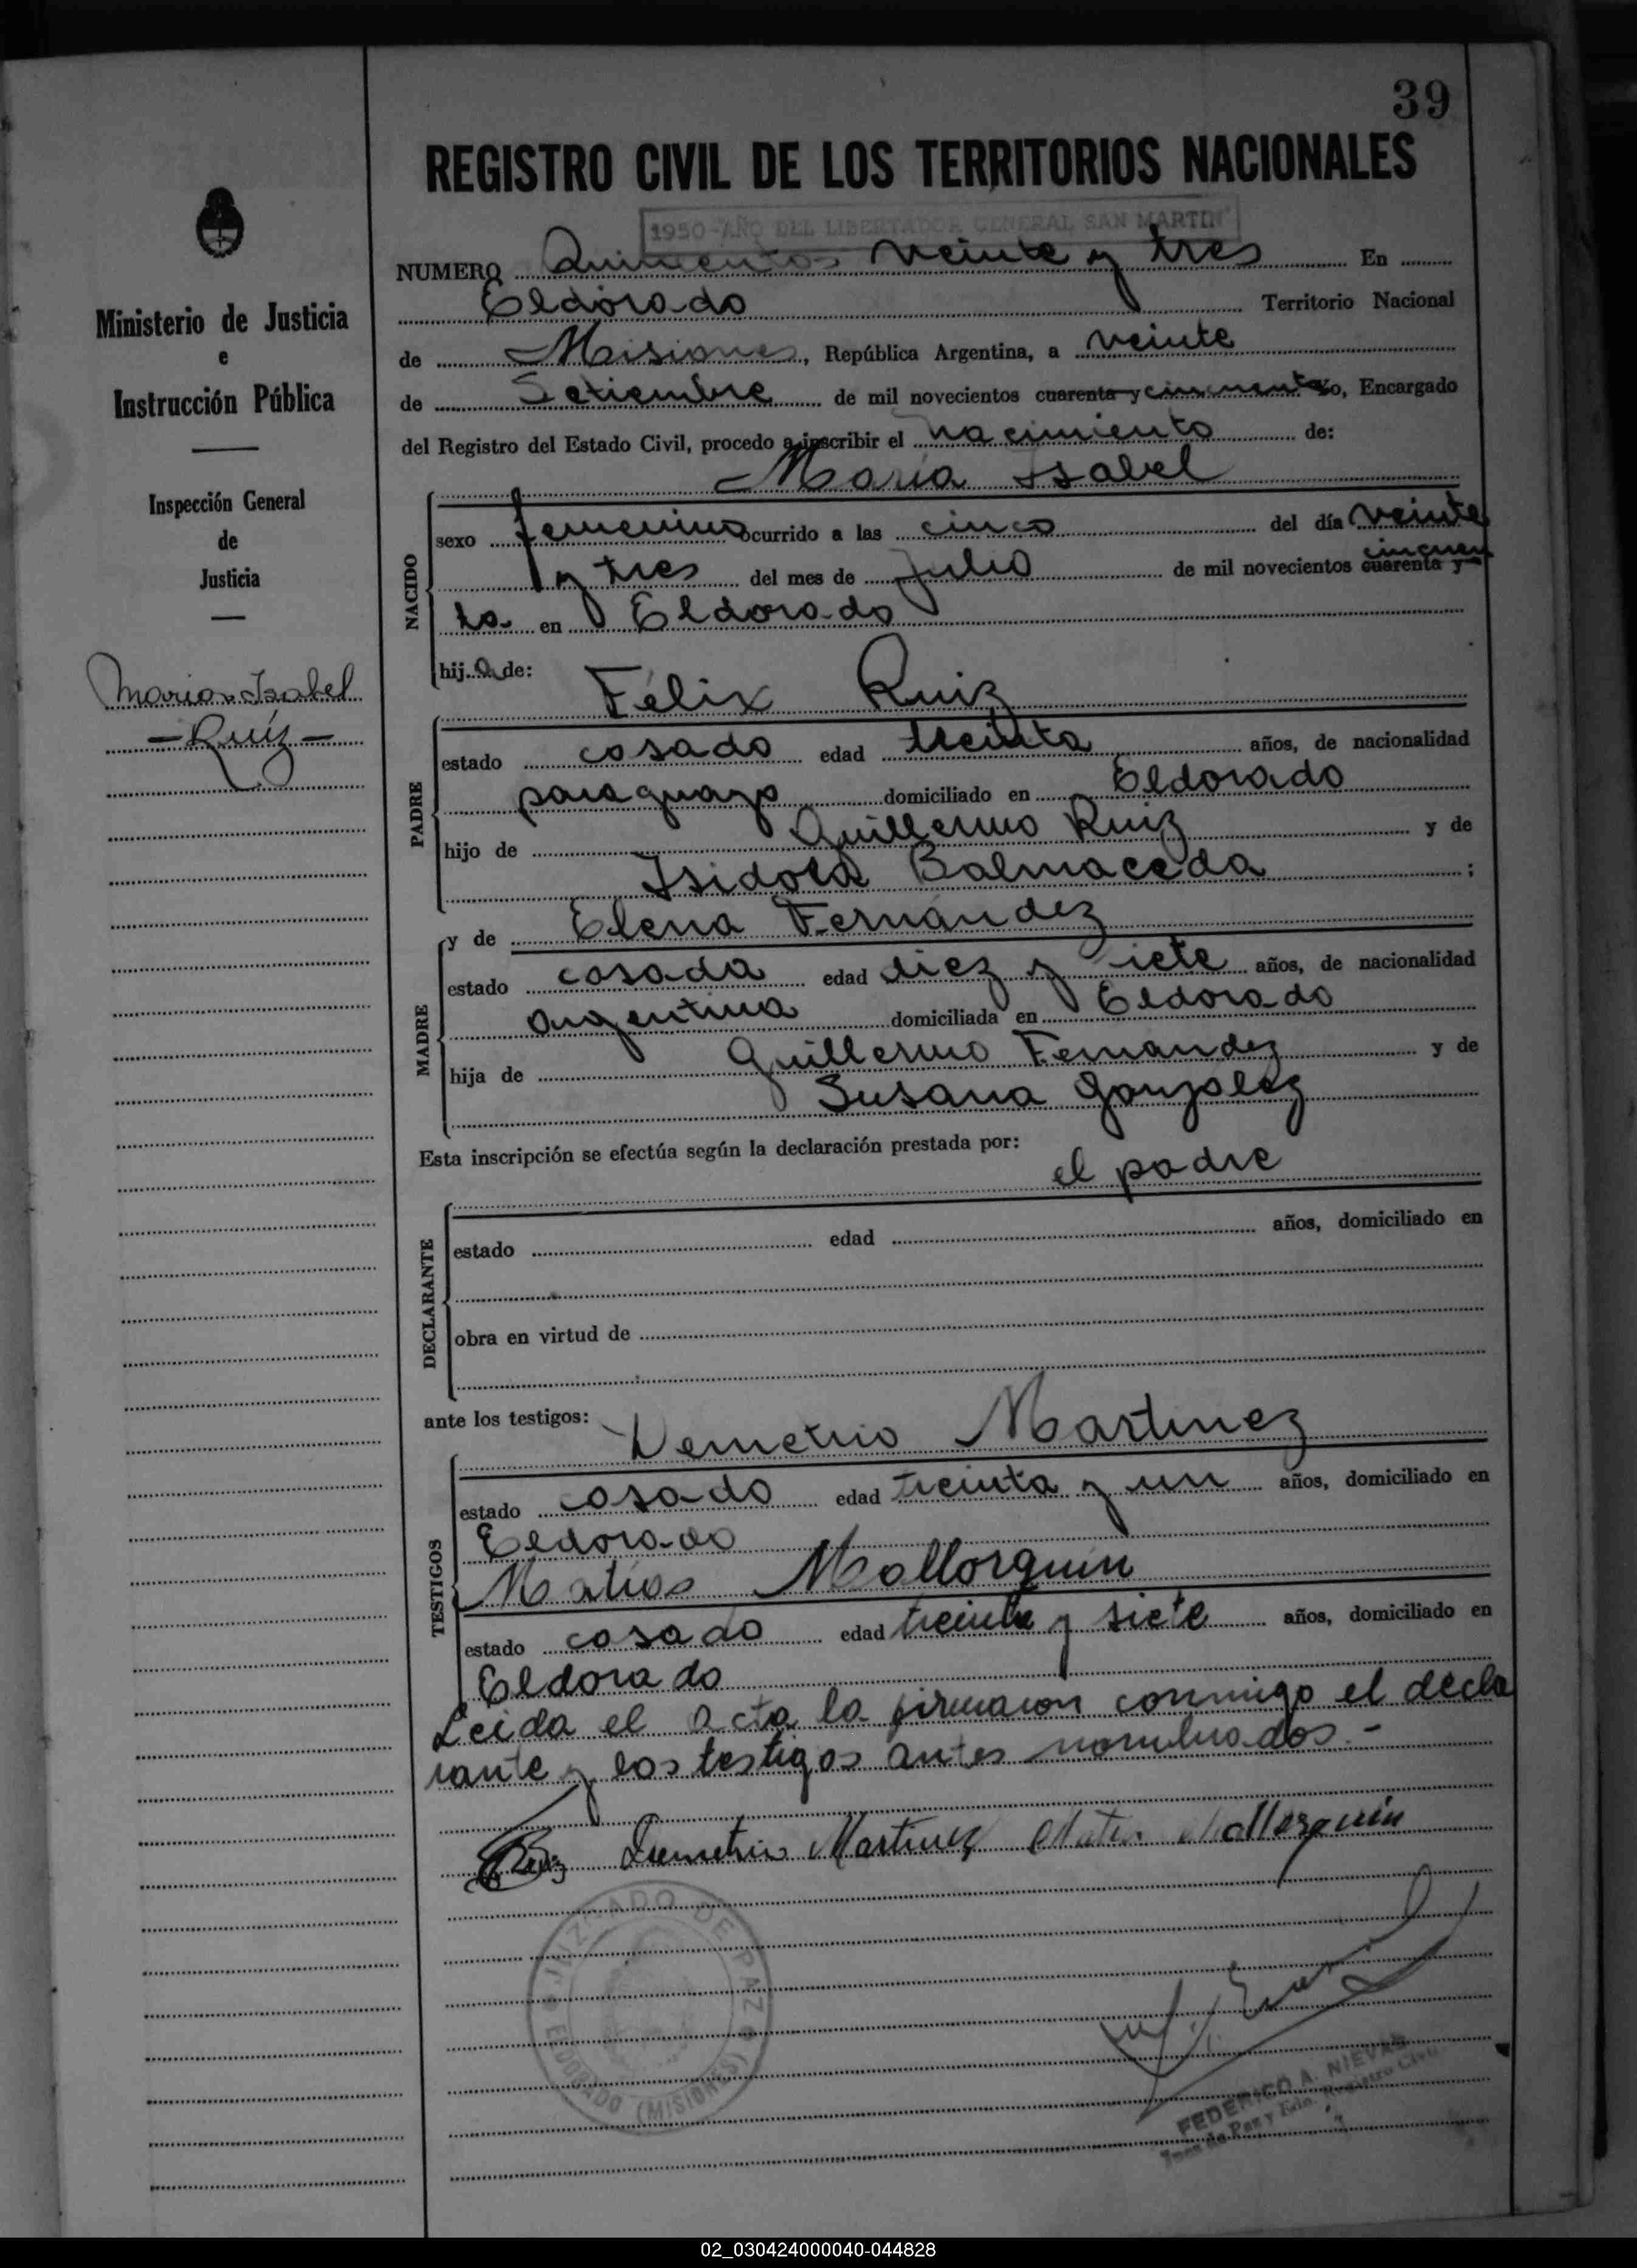 39
REGISTRO CIVIL DE LOS TERRITORIOS NACIONALES
1950-AÑO DEL LIBERTADOR GENERAL SAN MARTIN
NUMERO Quinientos veinte y tres En
Eldorado Territorio Nacional
de Misiones, República Argentina, a veinte
de Setiembre de mil novecientos cuarenta y cincuenta yo, Encargado
del Registro del Estado Civil, procedo a inscribir el nacimiento de:
Maria Isabel
NACIDO
sexo femenino ocurrido a las cinco del día veinte
y tres del mes de Julio de mil novecientos cuarenta y cincuen
ta en Eldorado
hija de:
Félix Ruiz
PADRE
estado casado edad treinta años, de nacionalidad
paraguayo domiciliado en Eldorado
hijo de Guillermo Ruiz y de
Isidora Balmaceda ;
y de Elena Fernández
MADRE
estado casada edad diez y siete años, de nacionalidad
argentina domiciliada en Eldorado
hija de Guillermo Fernandez y de
Susana Gonzalez
Esta inscripción se efectúa según la declaración prestada por:
el padre
DECLARANTE
estado edad años, domiciliado en
obra en virtud de
ante los testigos:
Demetrio Martinez
TESTIGOS
estado casado edad treinta y un años, domiciliado en
Eldorado
Matias Mallorquin
estado casado edad treinta y siete años, domiciliado en
Eldorado
Leida el acta la firmaron conmigo el decla
rante y los testigos antes nombrados.-
Ruiz Demetrio Martinez Matia Mallorquin
JUZGADO DE PAZ
ELDORADO (MISIONES)
FEDERICO A. NIEVAS
Juez de Paz y Enc. Registro Civil
Ministerio de Justicia
e
Instrucción Pública
Inspección General
de
Justicia
Maria Isabel
- Ruíz -
02_030424000040-044828